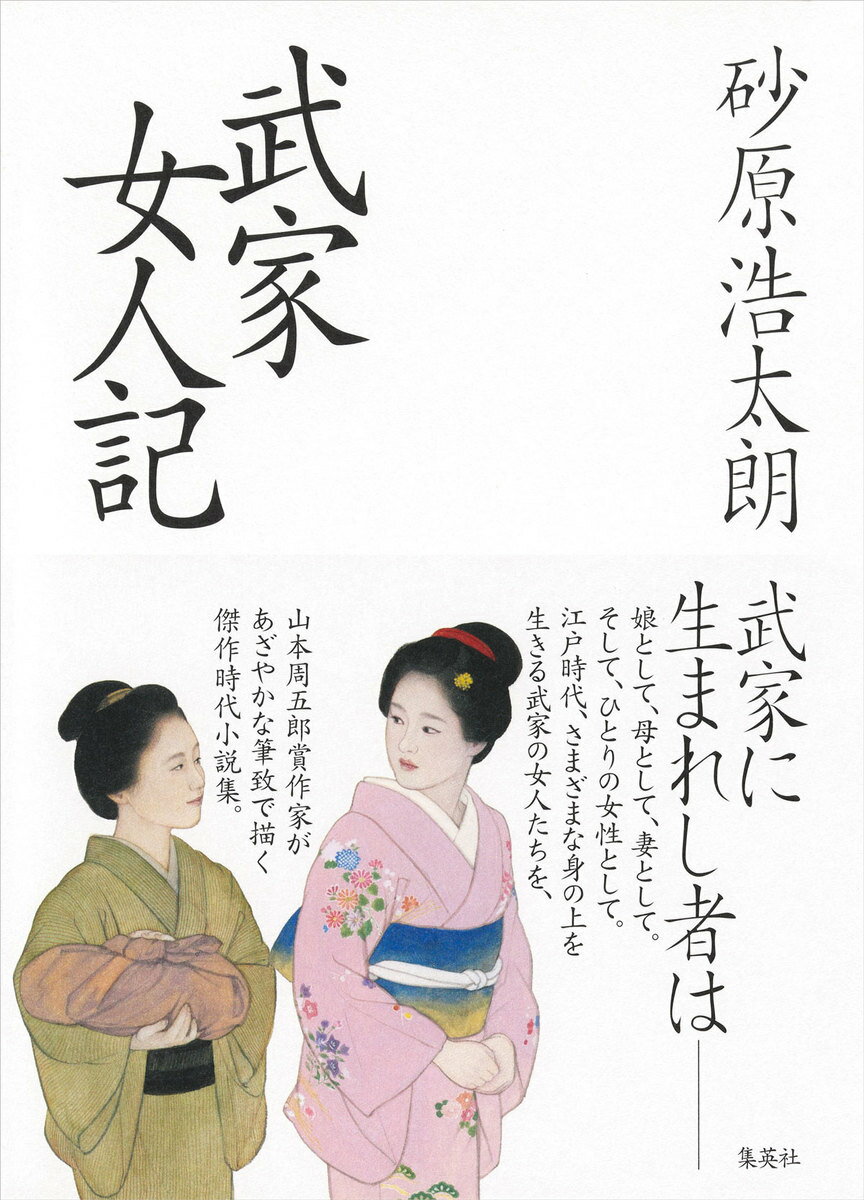 砂原浩太朗
武家
女人記
武家に
生まれし者は――
娘として、母として、妻として。
そして、ひとりの女性として。
江戸時代、さまざまな身の上を
生きる武家の女人たちを、
山本周五郎賞作家が
あざやかな筆致で描く
傑作時代小説集。
集英社